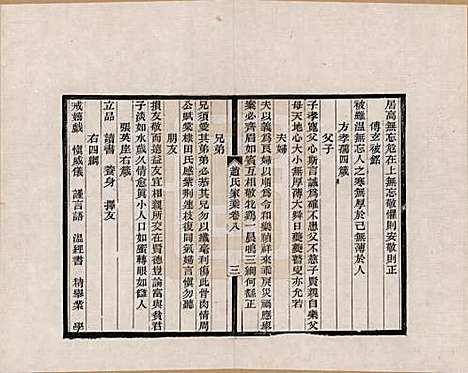 居高無忘危在上無忘敬懼則安敬則正
傅玄被銘
被雖溫無忘人之寒無厚於己無薄於人
方孝孺四箴
父子
子孝寬父心斯言誠爲確不患父不慈子賢親自樂父
母天地心大小無厚薄大舜日夔夔瞽叟亦允若
夫婦
夫以義爲良婦以順爲令和樂禎祥來乖戾災禍應舉
案必齊眉如賓互相敬牝雞一晨鳴三綱何由正
趙氏家乘卷八
三
兄弟
兄須愛其弟弟必恭其兄勿以纖毫利傷此骨肉情周
公賦棠棣田氏感紫荆連枝復同氣婦言愼勿聽
朋友
損友敬而遠益友宜相親所交在賢德豈論富與貧君
子淡如水歲久情愈眞小人口如蜜轉眼如仇人
張英座右箴
立品　讀書　養身　擇友
右四綱
戒嬉戲　愼威儀　謹言語　溫經書　精舉業　學